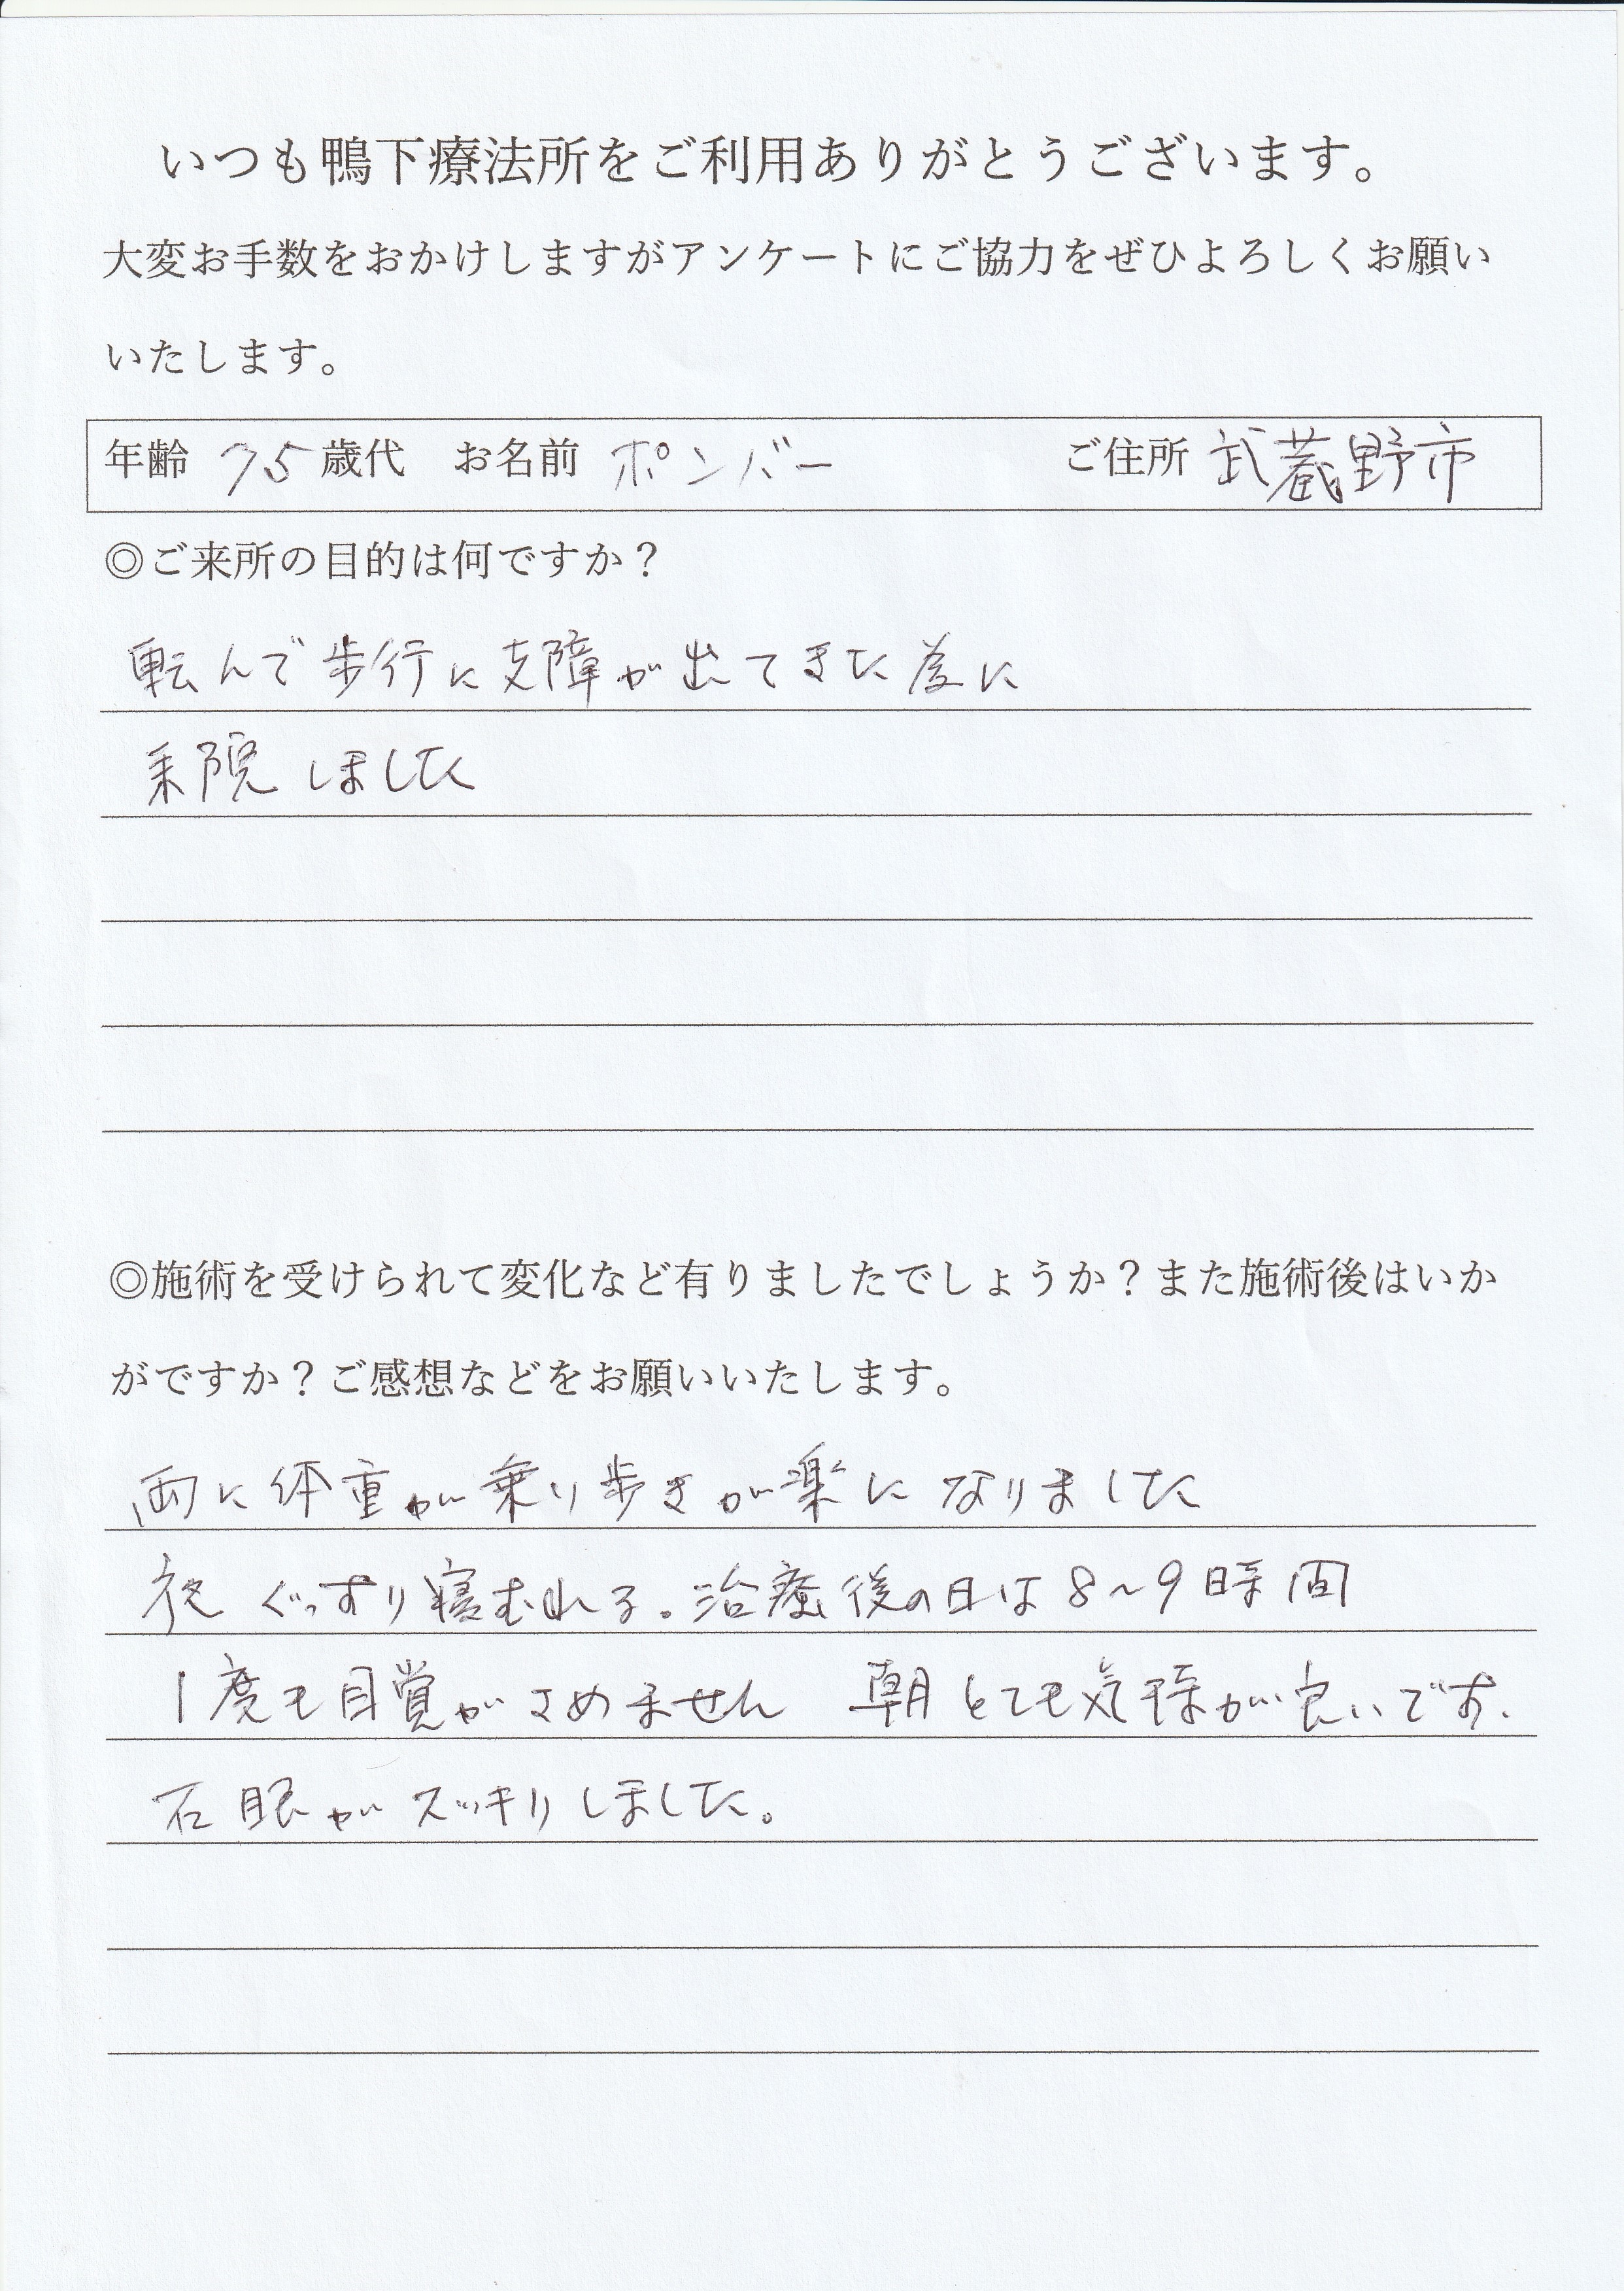 いつも鴨下療法所をご利用ありがとうございます。
大変お手数をおかけしますがアンケートにご協力をぜひよろしくお願い
いたします。
年齢 75歳代 お名前 ポンバー ご住所 武蔵野市
◎ご来所の目的は何ですか？
転んで歩行に支障が出てきた為に
来院しました
◎施術を受けられて変化など有りましたでしょうか？また施術後はいか
がですか？ご感想などをお願いいたします。
両に体重が乗り歩きが楽になりました
夜ぐっすり寝むれる。治療後の日は8～9時間
1度も目覚がさめません 朝とても気持が良いです.
右眼がスッキリしました。